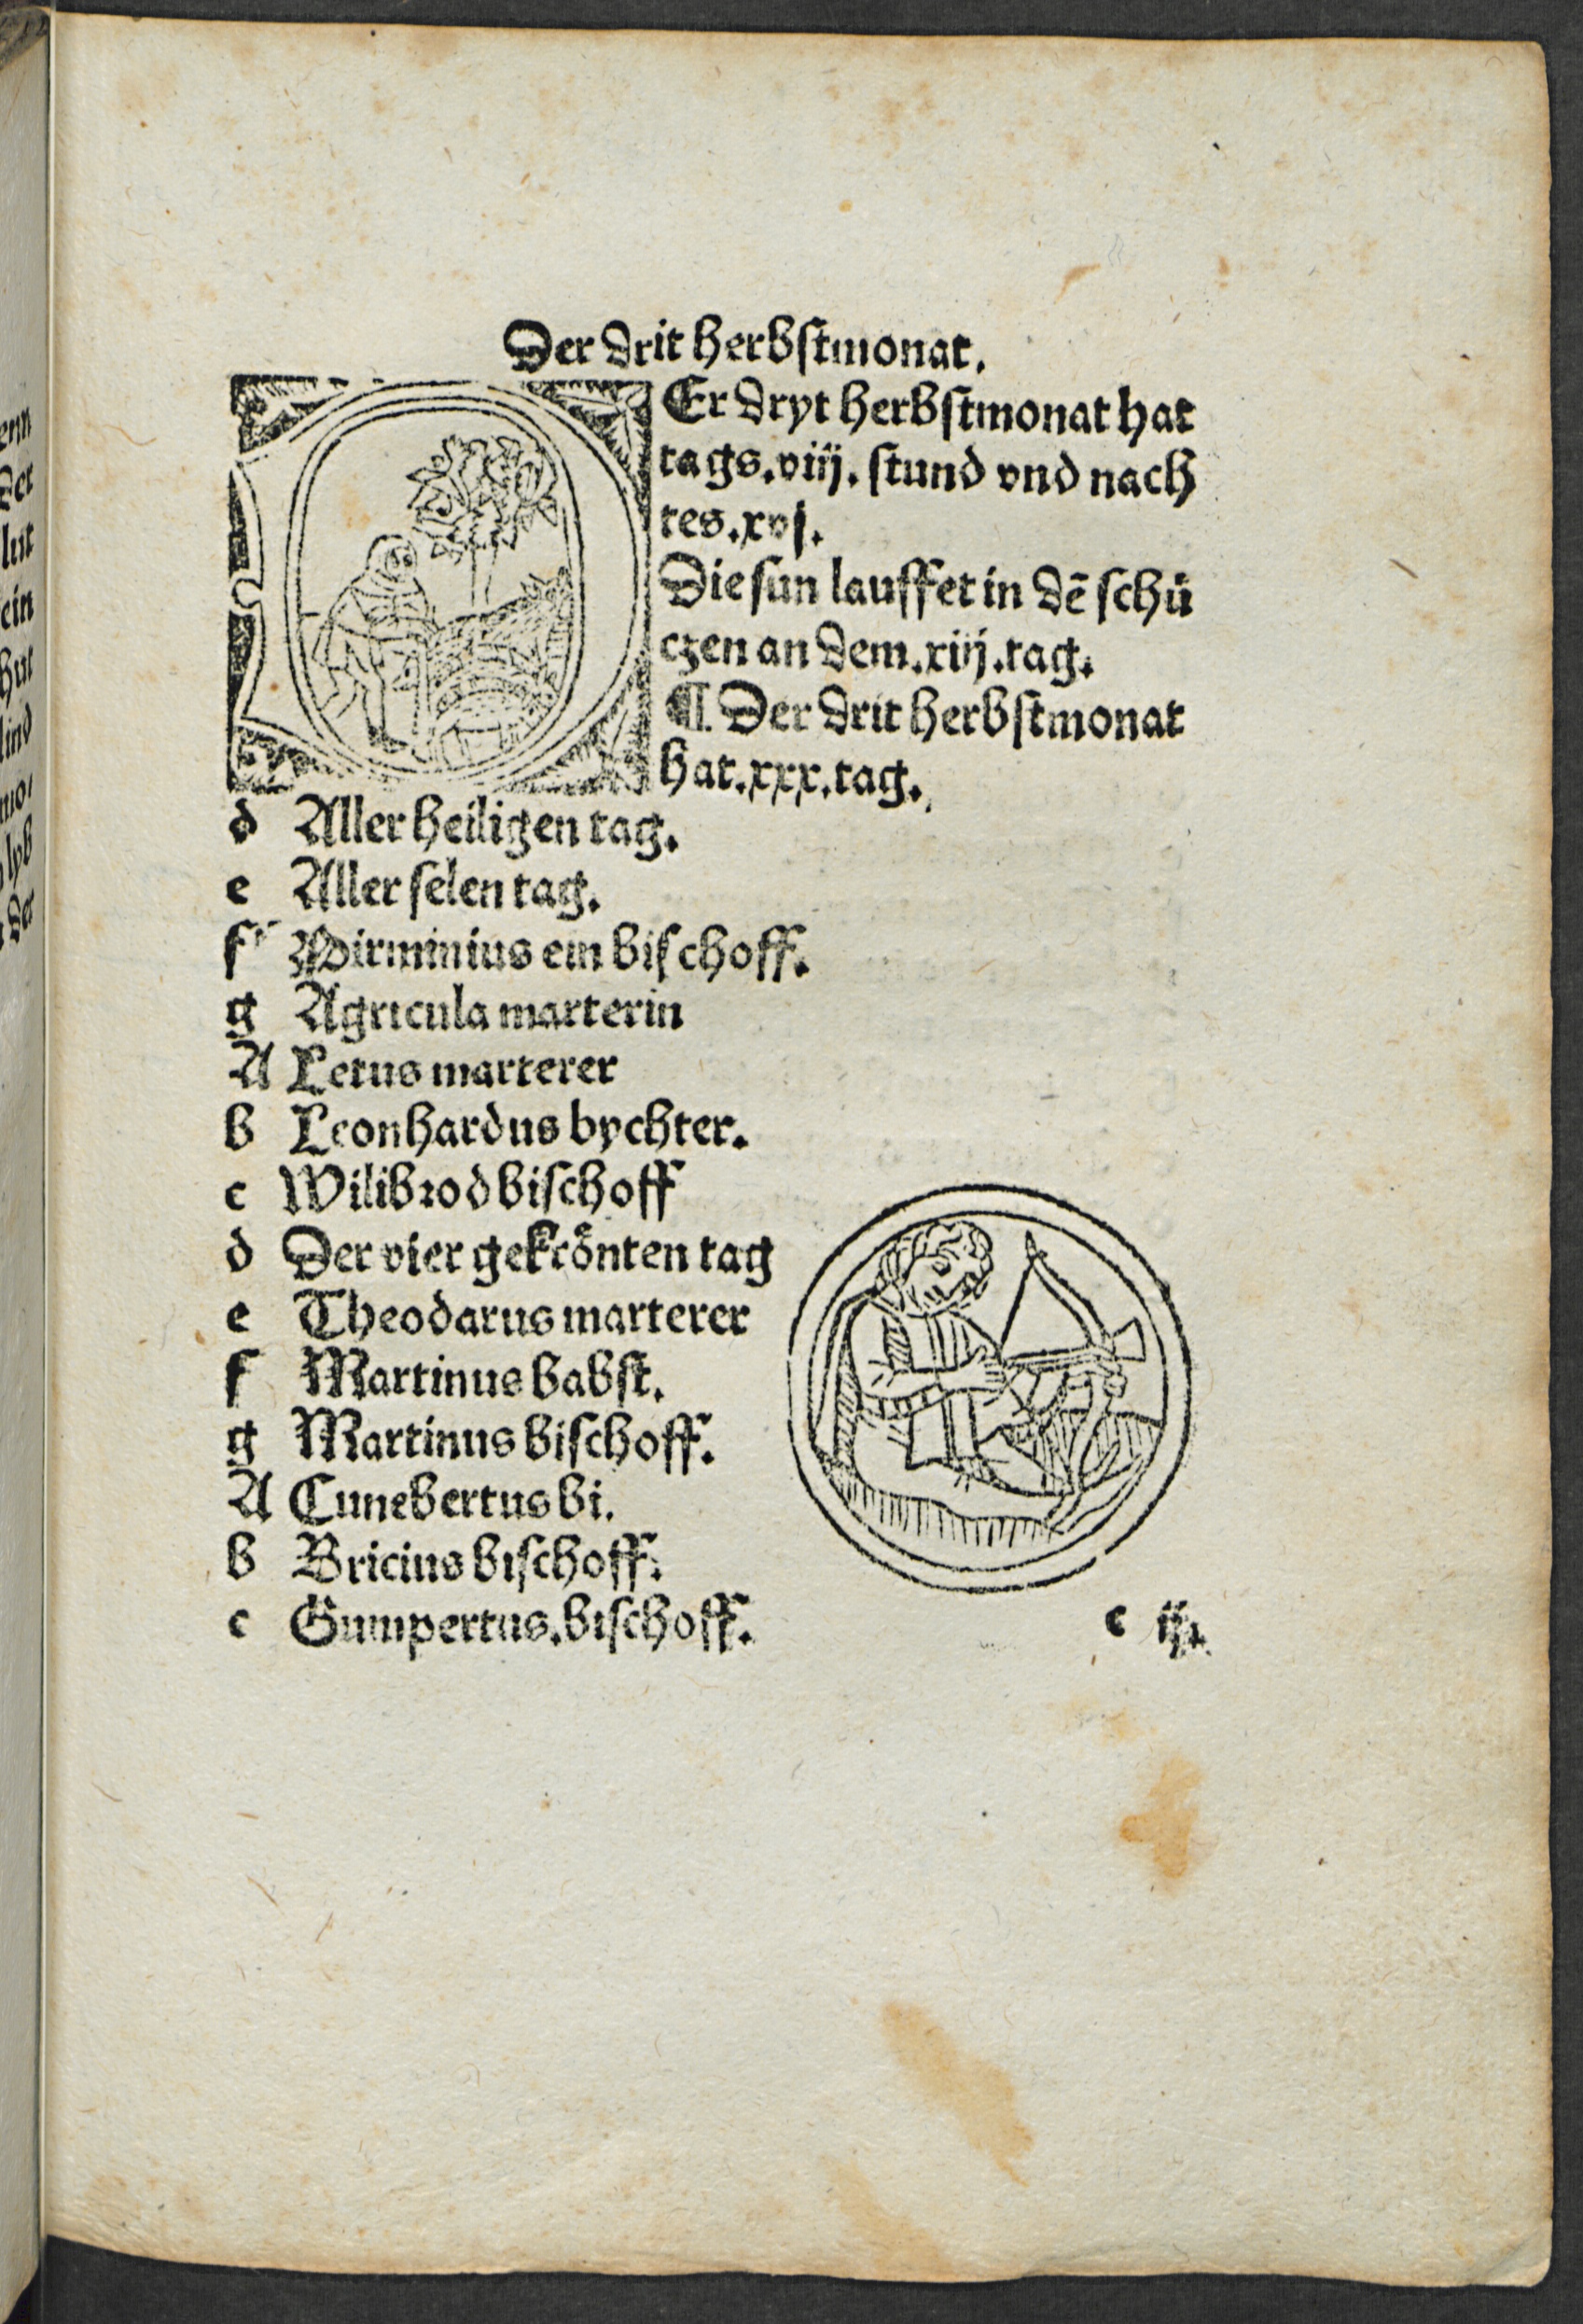 Der drit herbſtmonat.
Er dryt herbſtmonat hat
tags.viij. ſtund vnd nach
tes.xvj.
Die ſun lauffet in dē ſchü
czen an dem.xiij.tag.
¶ Der drit herbſtmonat
hat.xxx.tag.
d Aller heiligen tag.
e Aller ſelen tag.
f Pirminius ein biſchoff.
g Agricula marterin
A Letus marterer
b Leonhardus bychter.
c Wilibrod biſchoff
d Der vier gekrönten tag
e Theodarus marterer
f Martinus babſt.
g Martinus biſchoff.
A Cunebertus bi.
b Bricius biſchoff.
c Gumpertus.biſchoff.
c ij.